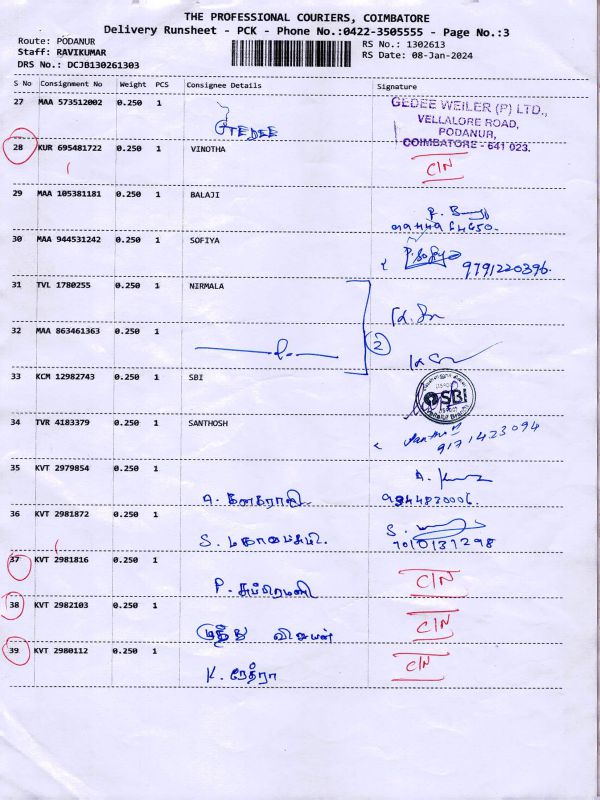 THE PROFESSIONAL COURIERS, COIMBATORE
Delivery Runsheet - PCK - Phone No.:0422-3505555 - Page No.:3
Route: PODANUR
RS No.: 1302613
Staff: RAVIKUMAR
RS Date: 08-Jan-2024
DRS No.: DCJB130261303
S No Consignment No Weight PCS Consignee Details Signature
27 MAA 573512002 0.250 1
GEDEE
GEDEE WEILER (P) LTD.,
VELLALORE ROAD,
PODANUR,
COIMBATORE - 641 023.
28 KUR 695481722 0.250 1 VINOTHA
C/N
29 MAA 105381181 0.250 1 BALAJI
30 MAA 944531242 0.250 1 SOFIYA
9791220396.
31 TVL 1780255 0.250 1 NIRMALA
32 MAA 863461363 0.250 1
2
33 KCM 12982743 0.250 1 SBI
SBI
34 TVR 4183379 0.250 1 SANTHOSH
9171423094
35 KVT 2979854 0.250 1
9344830006.
36 KVT 2981872 0.250 1
7010131298
37 KVT 2981816 0.250 1
P. சுப்ரமணி
C/N
38 KVT 2982103 0.250 1
முத்து விஜயன்
C/N
39 KVT 2980112 0.250 1
K. நேத்ரா
C/N